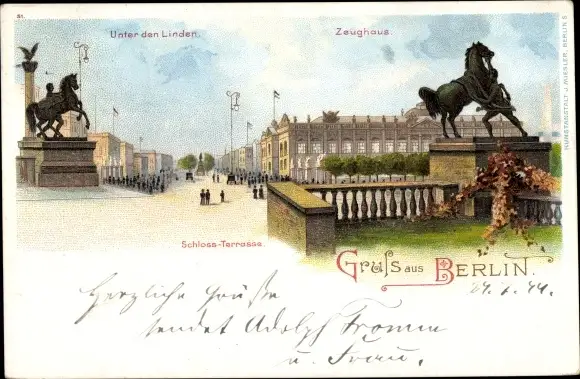 51.
Unter den Linden.
Zeughaus.
KUNSTANSTALT J. MIESLER, BERLIN S
Schloss-Terrasse.
Gruſs aus BERLIN.
Herzliche Grüße
sendet Adolph Fromm
u. Frau.